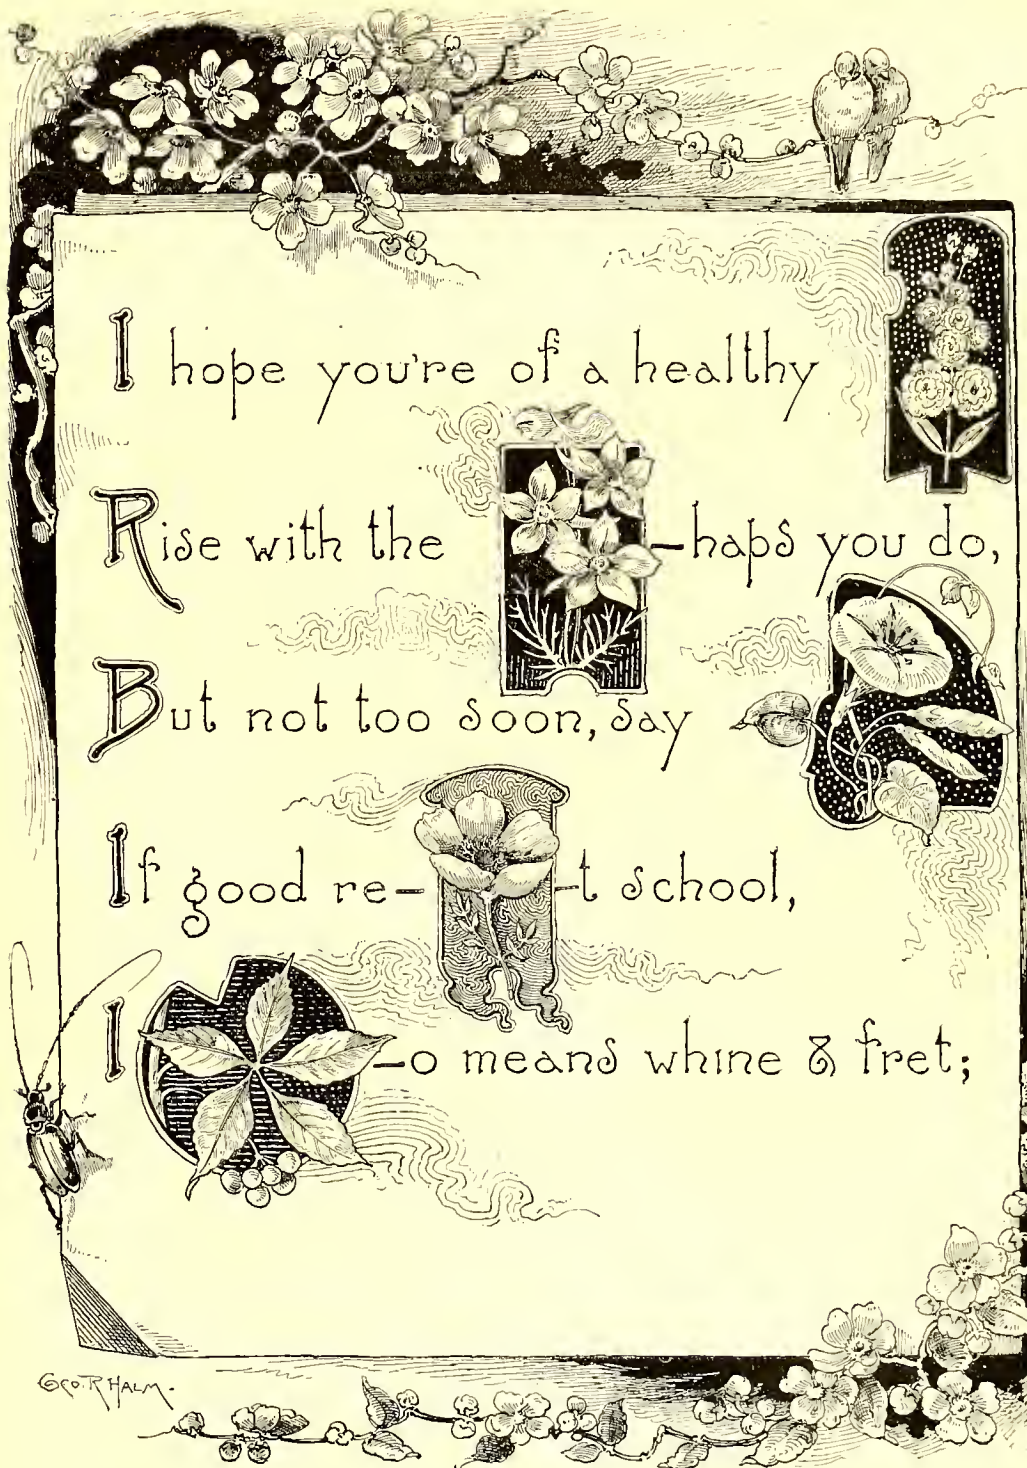 I hope you're of a healthy
Rise with the -haps you do,
But not too soon, say
If good re- -t school,
I -o means whine & fret;
Geo. R. Halm.